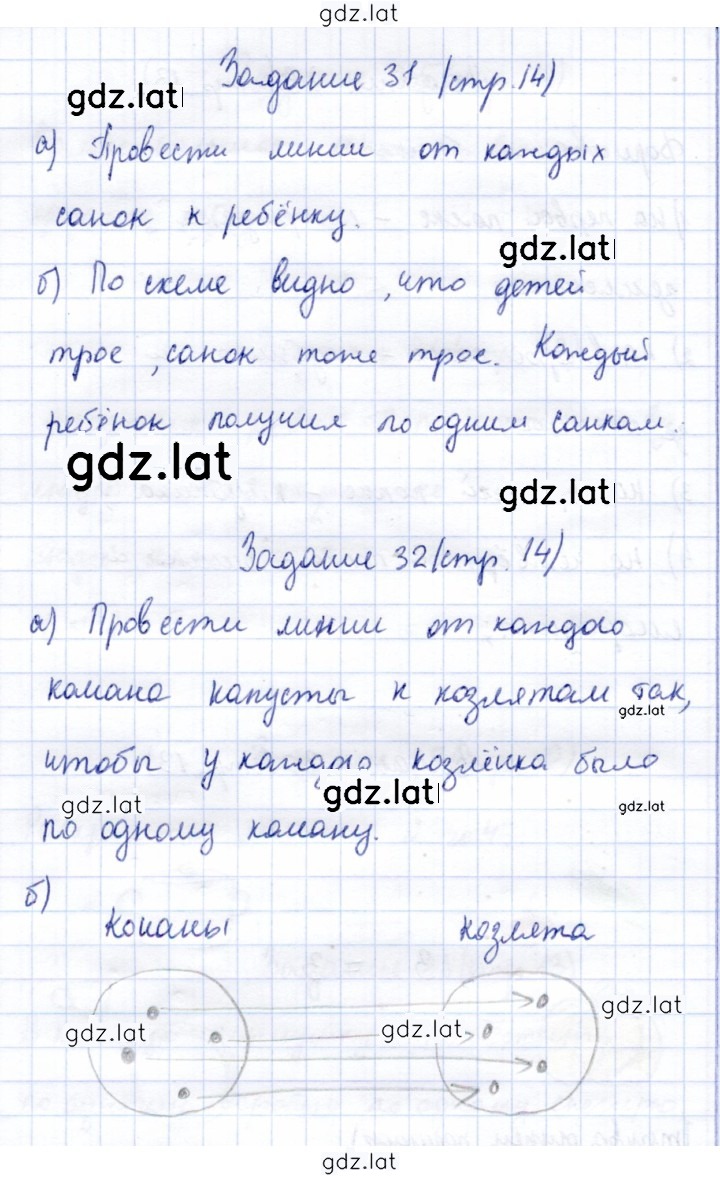 gdz.lat
Задание 31 (стр. 14)
gdz.lat
а) Провести линии от каждых
санок к ребёнку.
gdz.lat
б) По схеме видно, что детей
трое, санок тоже трое. Каждый
ребёнок получил по одним санкам.
gdz.lat
gdz.lat
Задание 32 (стр. 14)
а) Провести линии от каждого
кочана капусты к козлятам так,
gdz.lat
чтобы у каждого козлёнка было
gdz.lat gdz.lat gdz.lat
по одному кочану.
б)
Кочаны козлята
gdz.lat gdz.lat gdz.lat
gdz.lat